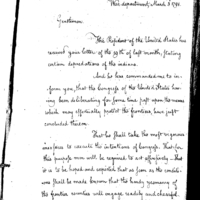 War department, March 3. 1791.
Gentlemen
The President of the United States has
received your letter of the 29th of last month, stating
certain depredations of the indians.
And he has commanded me to in-
form you, that the Congress of the United States hav-
ing been deliberating for some time past upon the means
which may effectually protect the frontiers, have just
concluded therein.
That he shall take the most vigorous
measures to execute the intentions of Congress. That for
this purpose men will be required to act offensively. That
it is to be hoped and expected that as soon as the condi-
tions shall be made known that the hardy yeomanry of
the frontier counties will engage readily and chearful-